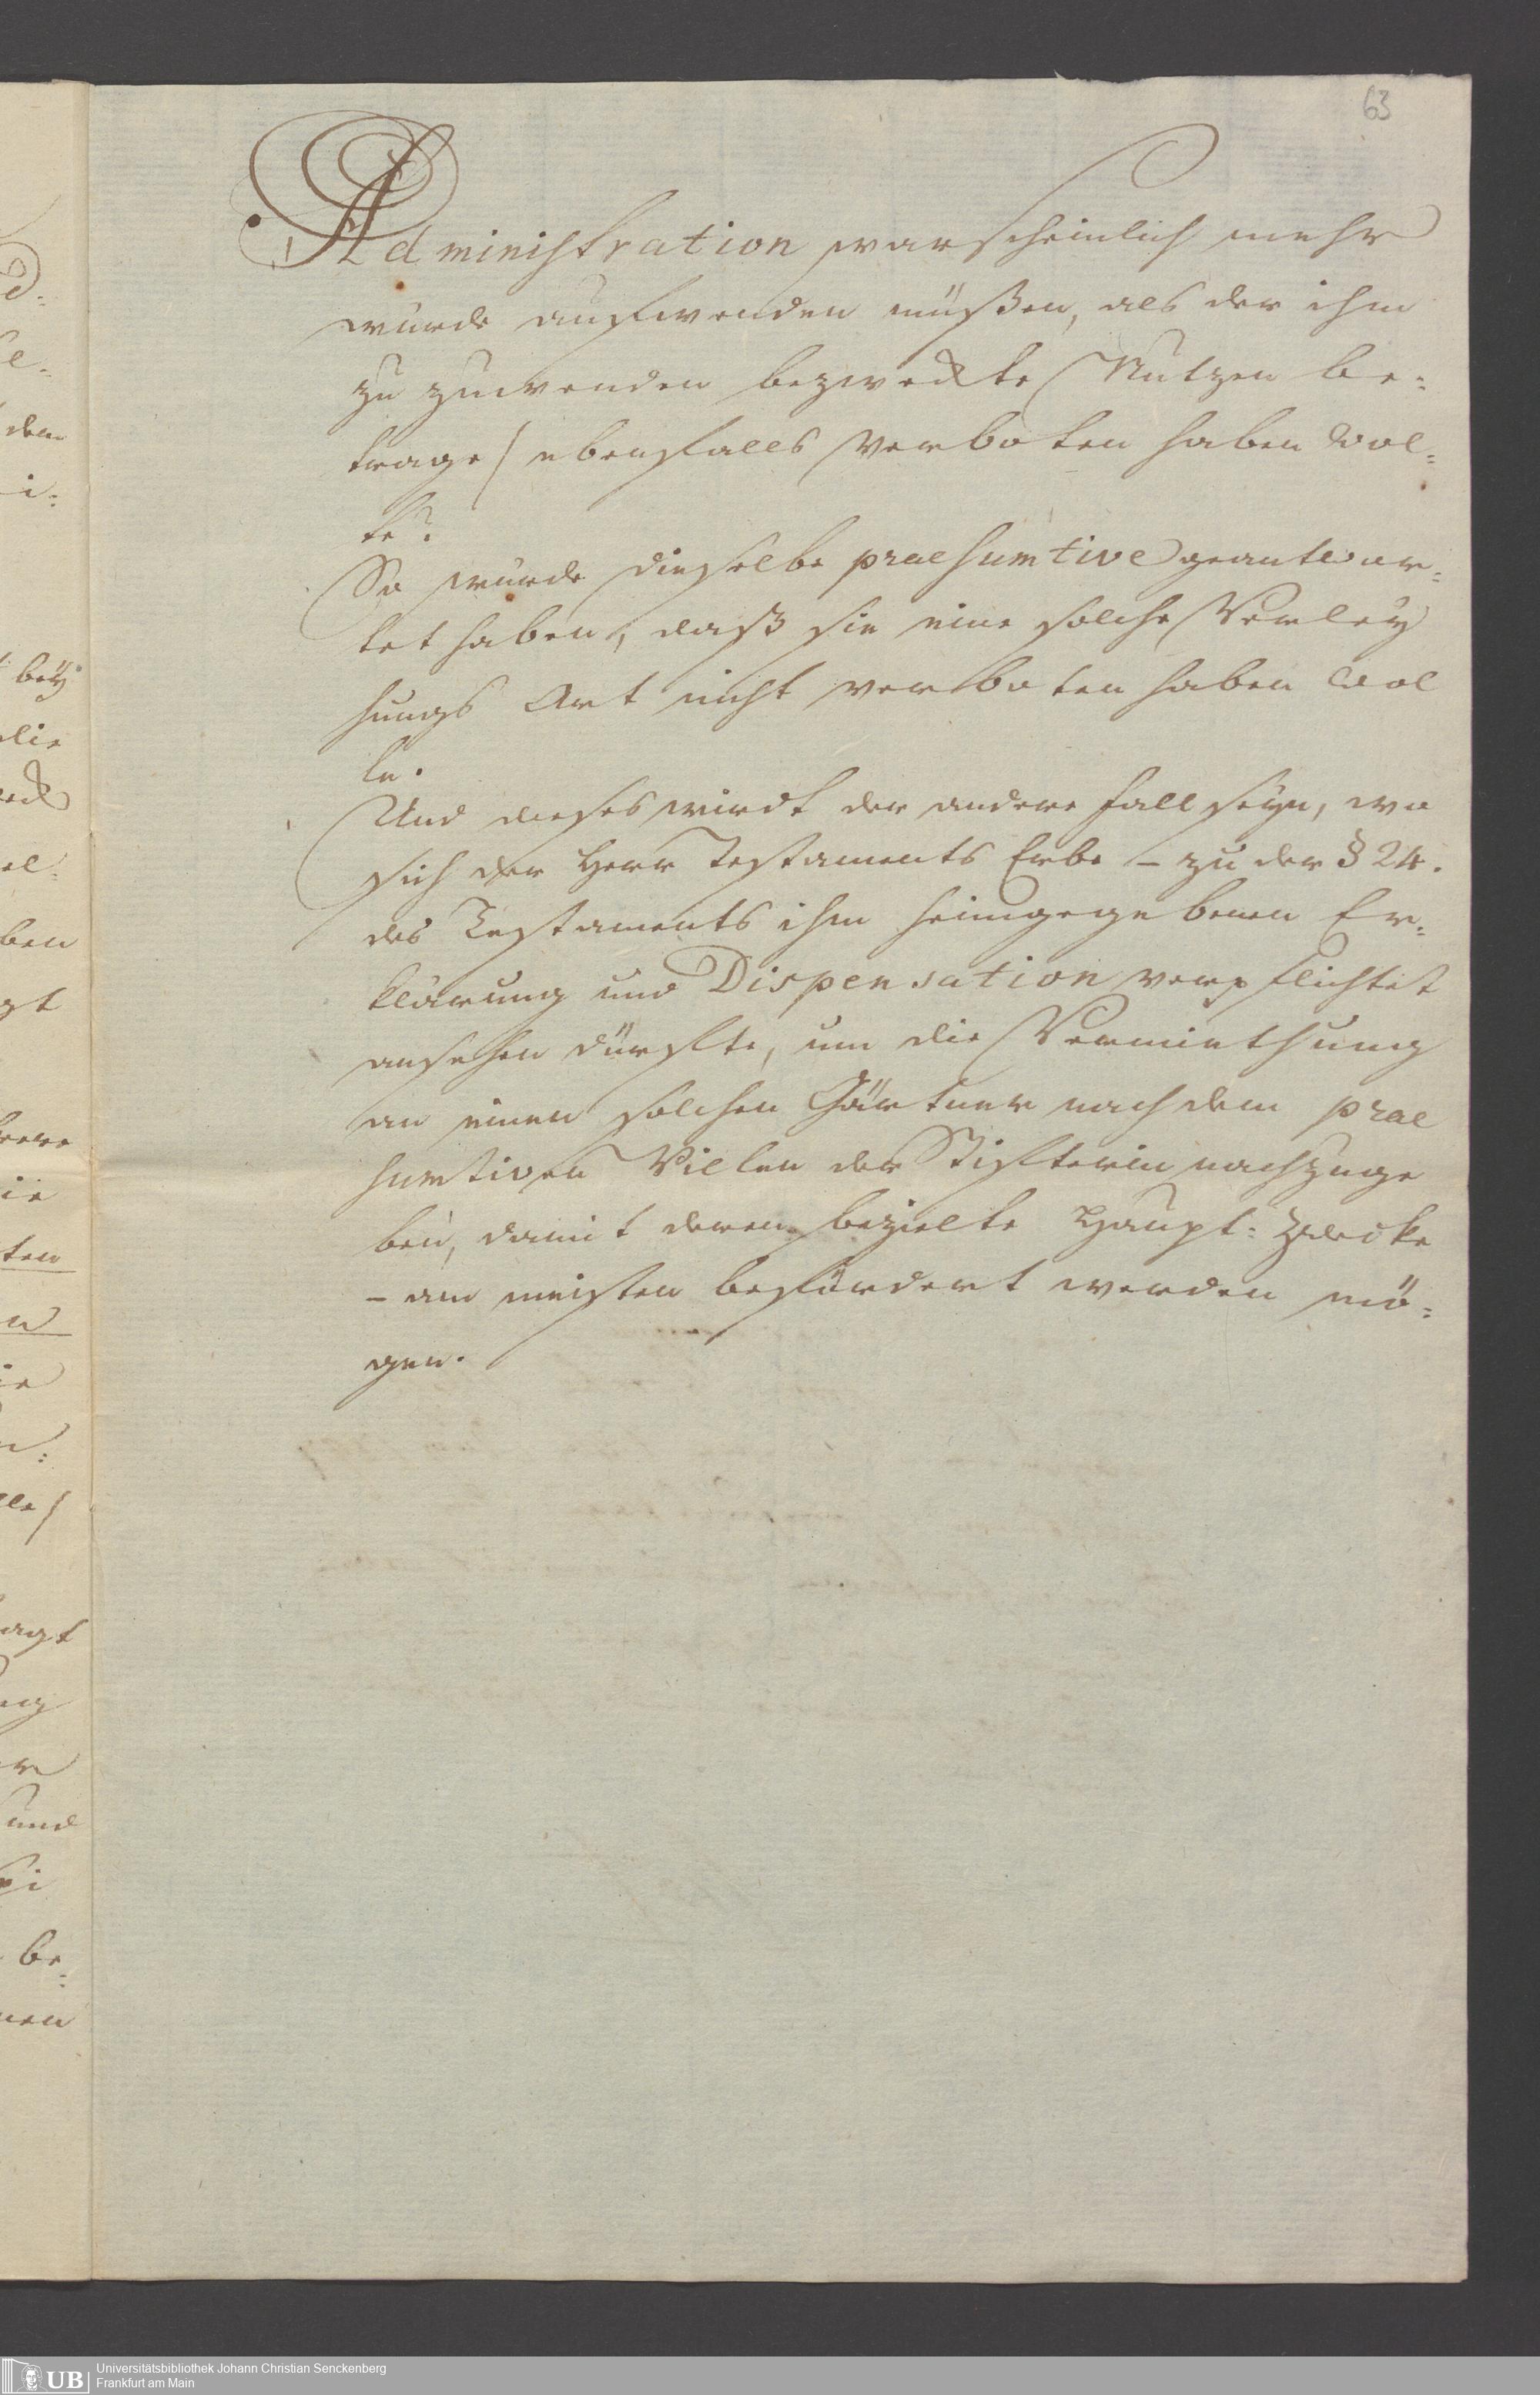 63
Administration warscheinlich mehr
würde aufwenden müßen, als der ihm
zu zuwenden bezweckte Nutzen be=
trage / ebenfalls verboten haben wol=
te?
So würde dieselbe praesumtive geantwor=
tet haben, daß sie eine solche Verley
hungs Art nicht verboten haben wol
le.
Und dieses wirdt der andere Fall seyn, wo
sich der Herr Testaments Erbe – zu der § 24.
des Testaments ihm heimgegebenen Er=
klärung und Dispensation verpflichtet
ansehen dürfte, um die Vermiethung
an einen solchen Gärtner nach dem prae
sumtiven Willen der Stifterin nachzuge
ben, damit deren bezielte Haupt=Zwecke
– am meisten befördert werden mö=
gen.
dem
i=
bey
ben
gt
ten
agt
und
be=
UB
Universitätsbibliothek Johann Christian Senckenberg
Frankfurt am Main